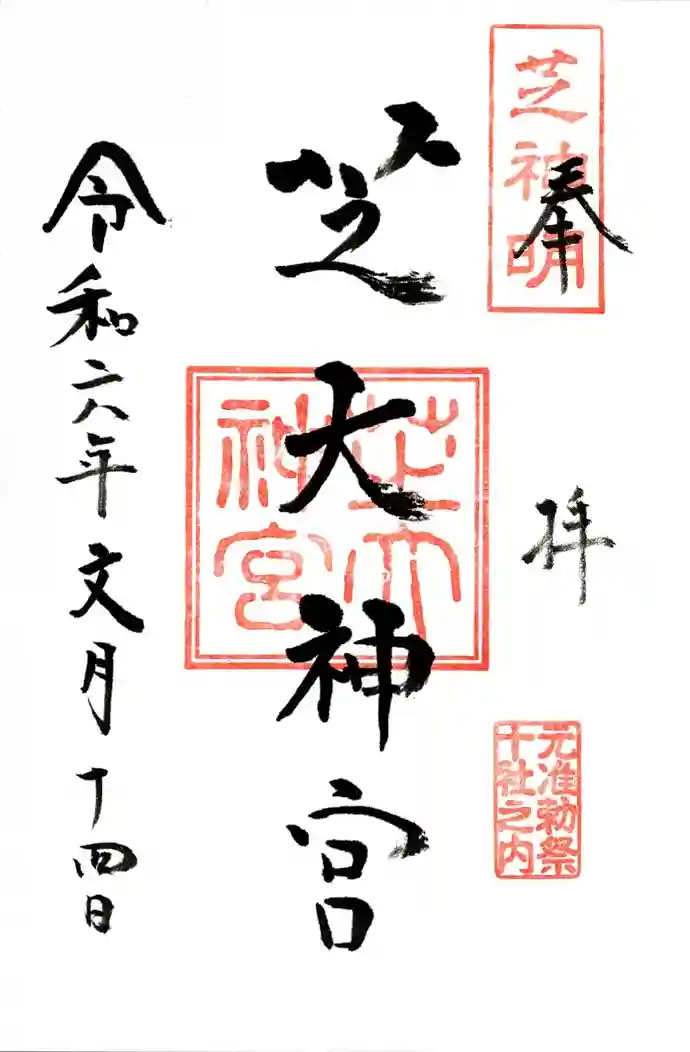 芝神明
奉
拝
元准勅祭
十社之内
芝大神宮
芝大
神宮
令和六年文月十四日